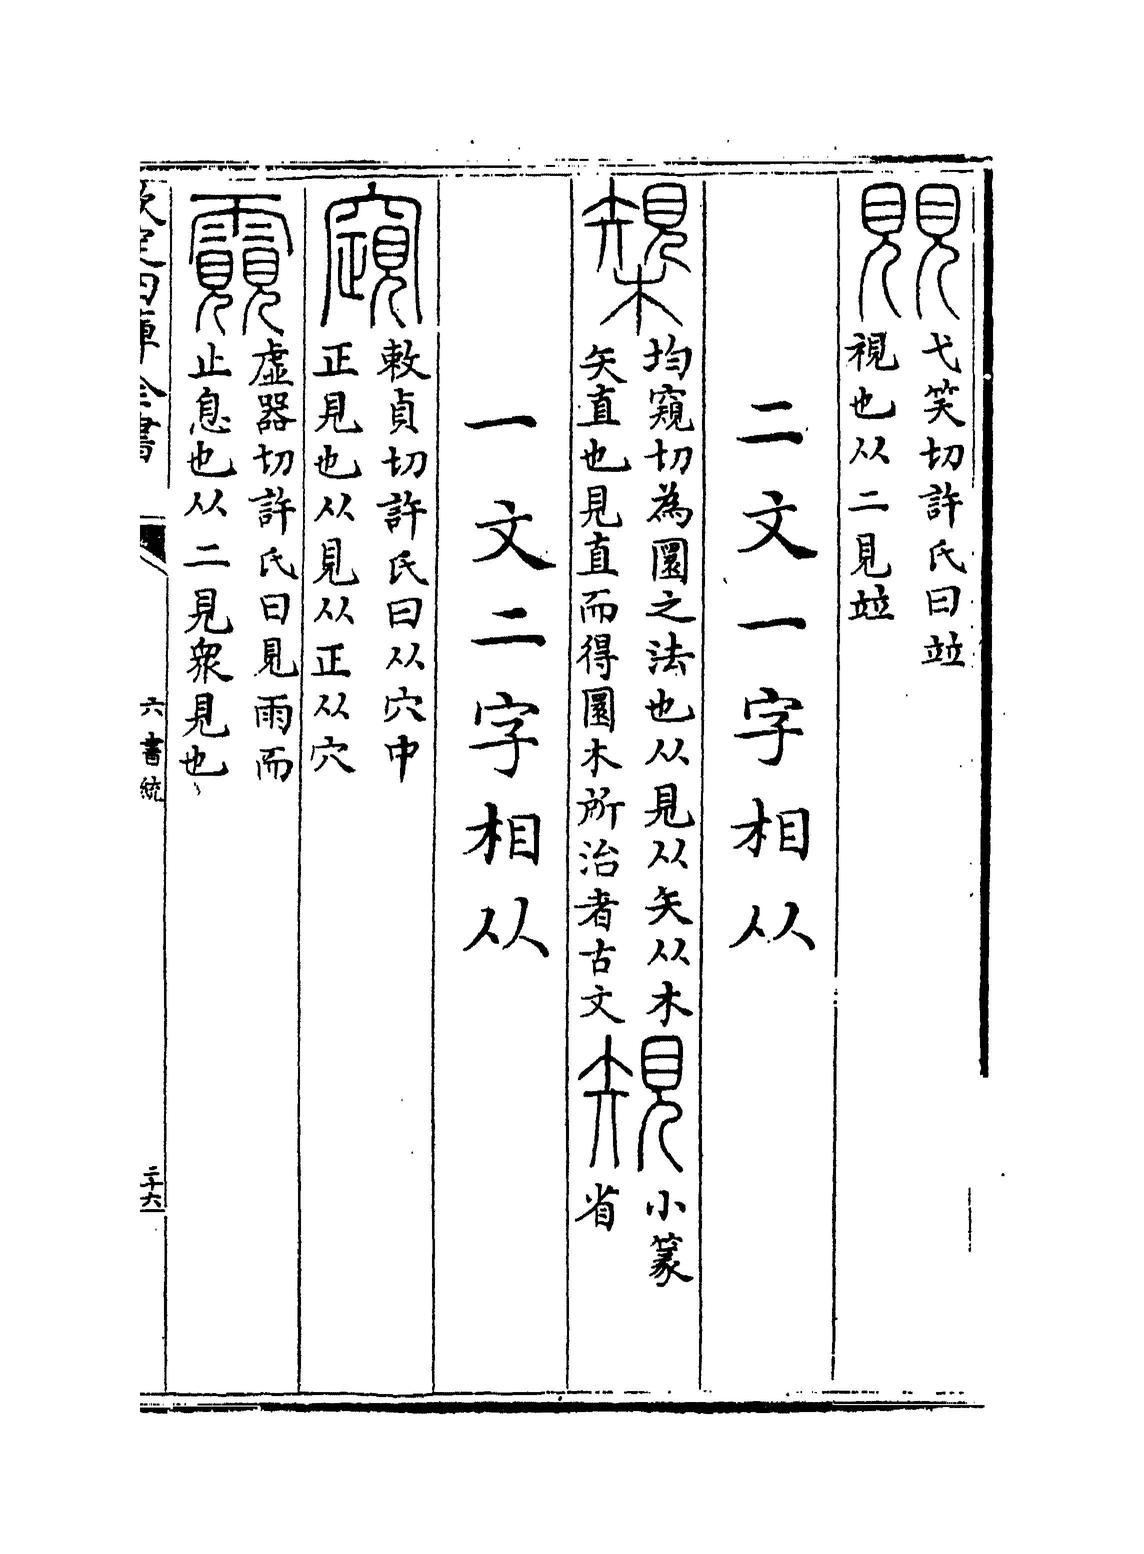 覞 弋笑切許氏曰並
視也从二見並
二文一字相从
均窺切為圜之法也从見从矢从木
矢直也見直而得圜木所治者古文
規 小篆
省
一文二字相从
敕貞切許氏曰从穴中
正見也从見从正从穴
虛器切許氏曰見雨而
止息也从二見衆見也
欽定四庫全書
六書統
二十六